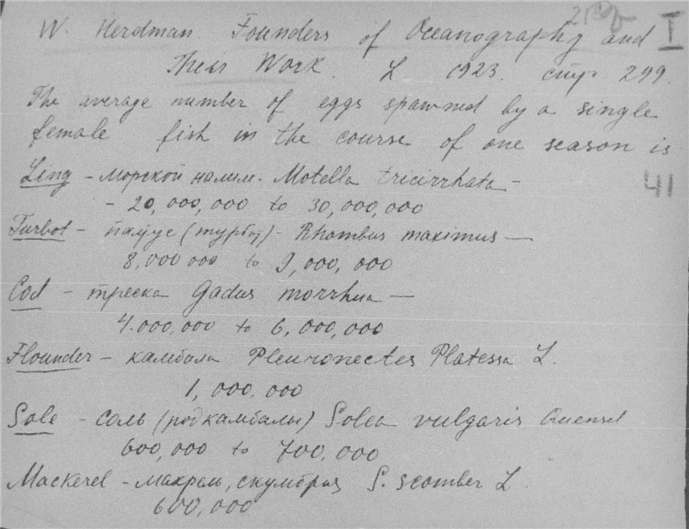 W. Herdman. Founders of Oceanography and I
Their Work. L 1923. стр. 299.
The average number of eggs spawned by a single
female fish in the course of one season is
Ling - морской налим. Motella tricirrhata - 41
- 20,000,000 to 30,000,000
Turbot - палтус (турбо) - Rhombus maximus —
8,000 000 to 9,000,000
Cod - треска Gadus morrhua —
4.000,000 to 6,000,000
Flounder - камбала Pleuronectes Platessa L.
1,000,000
Sole - соль (род камбалы) Solea vulgaris Quensel
600,000 to 700,000
Mackerel - макрель, скумбрия S. scomber L.
600,000